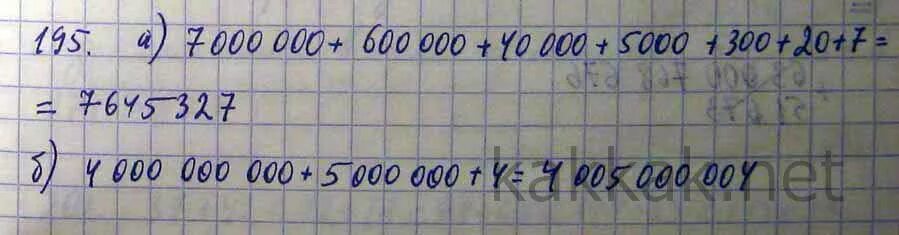 195. а) 7 000 000 + 600 000 + 40 000 + 5000 + 300 + 20 + 7 =
= 7645 327
б) 4 000 000 000 + 5 000 000 + 4 = 4 005 000 004
kakkak.net